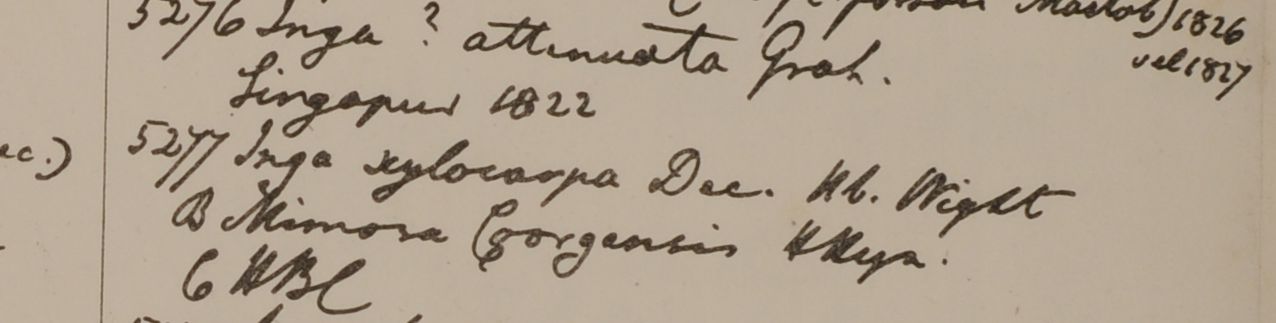 Martob) 1826
vel 1827
5276 Inga ? attenuata Grah.
Singapur 1822
ec.)
5277 Inga xylocarpa Dec. Hb. Wight
B Mimosa Gorgensis HHeyn.
C HBC